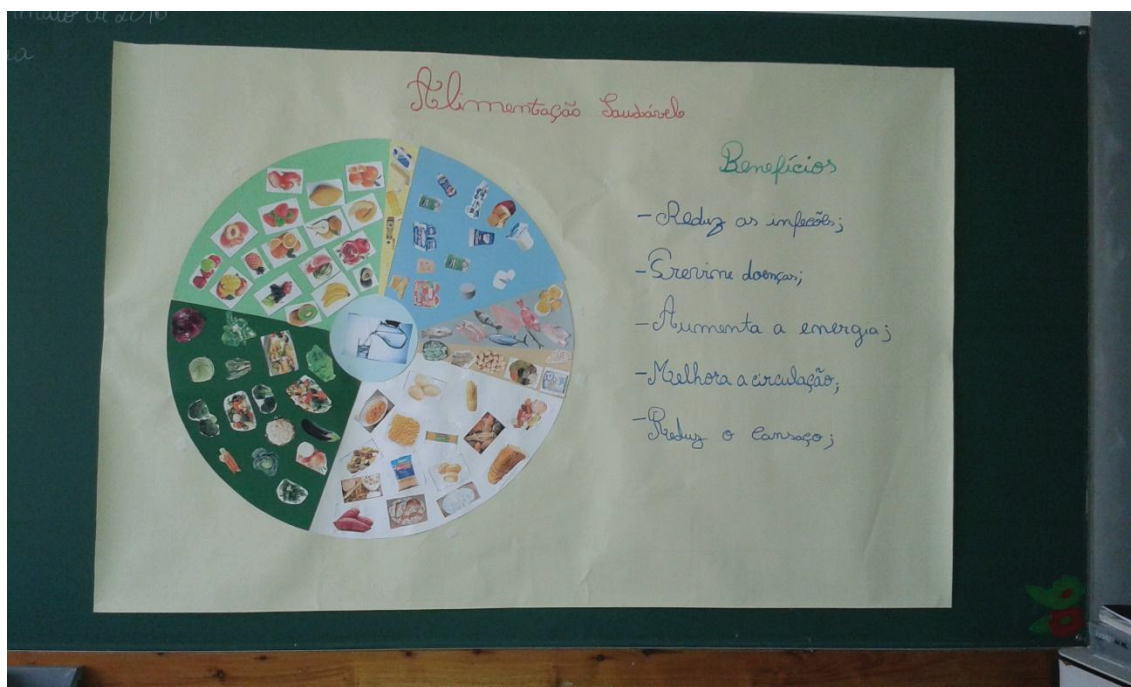 maio de 2016
Alimentação Saudável
Benefícios
- Reduz as infecões;
- Previne doenças;
- Aumenta a energia;
- Melhora a circulação;
- Reduz o cansaço;